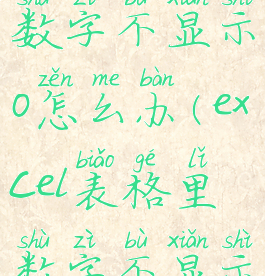 shù zì bù xiǎn shì
数字不显示
zěn me bàn
0怎么办(ex
biǎo gé lǐ
cel表格里
shù zì bù xiǎn shì
数字不显示